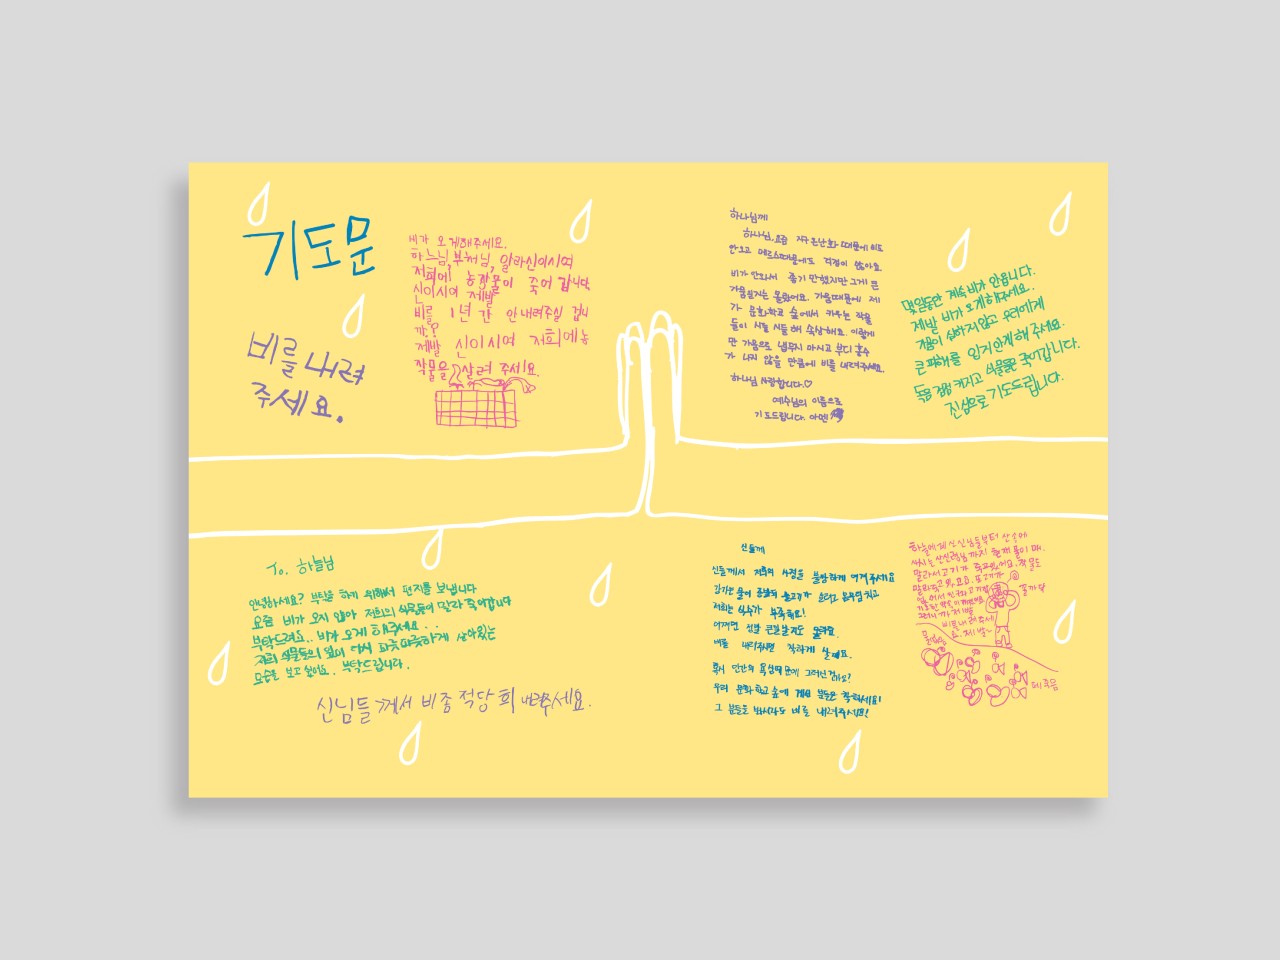 기도문
비를 내려
주세요.
비가 오게해주세요.
하느님, 부처님, 알라신이시여
저희에 농작물이 죽어 갑니다
신이시여 제발
비를 1년 간 안내려주실 겁니
까?
제발 신이시여 저희에농
작물을 살려 주세요.
하나님께
하나님, 요즘 지구온난화 때문에 비도
안오고 메르스때문에도 걱정이 많아요.
비가 안와서 좋기 만했지만 그게 큰
가뭄일지는 몰랐어요. 가뭄때문에 제
가 문화학교 숲에서 키우는 작물
들이 시들 시들 해 속상해요. 이렇게
만 가뭄으로 냅두지 마시고 부디 홍수
가 나지 않을 만큼에 비를 내려주세요.
하나님 사랑합니다.♡
예수님의 이름으로
기도드립니다. 아멘
몇일동안 계속 비가 안옵니다.
제발 비가 오게 해주세요..
가뭄이 심하지 않고 우리에게
큰 피해를 입히지 안게 해 주세요.
점점 커지고 식물들은 죽어갑니다.
진심으로 기도드립니다.
To. 하늘님
안녕하세요? 부탁을 하기 위해서 편지를 보냅니다
요즘 비가 오지 않아 저희의 식물들이 말라 죽어갑니다
부탁드려요.. 비가 오게 해주세요..
저희 식물들의 잎이 다시 파릇파릇하게 살아있는
모습을 보고 싶어요. 부탁드립니다.
신님들께서 비좀 적당희 내려주세요.
신들께
신들께서 저희의 사정을 불쌍하게 여겨주세요
강가는 물이 물고기가
저희는 식수가 부족해요!
어쩌면 정말 큰일날지도 몰라요.
비를 내려주시면 착하게 살께요.
혹시 인간의 욕심때문에 그러신건가요?
우리 문화학교 숲에 계신 분들은 착하세요!
그 분들을 봐서라도 비를 내려주세요!
하늘에 계신 신님들부터 산속에
사시는 산신령님까지 물이
말라서 고기가 죽고있어요. 작물도
말라죽고
비를 내려주세
요. 제발~